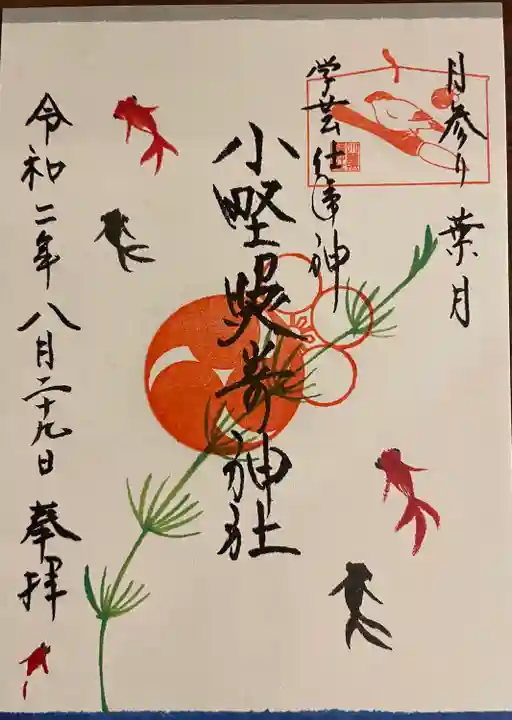 月参り 葉月
学芸仕事神
小野照崎神社
令和二年八月二十九日 奉拝